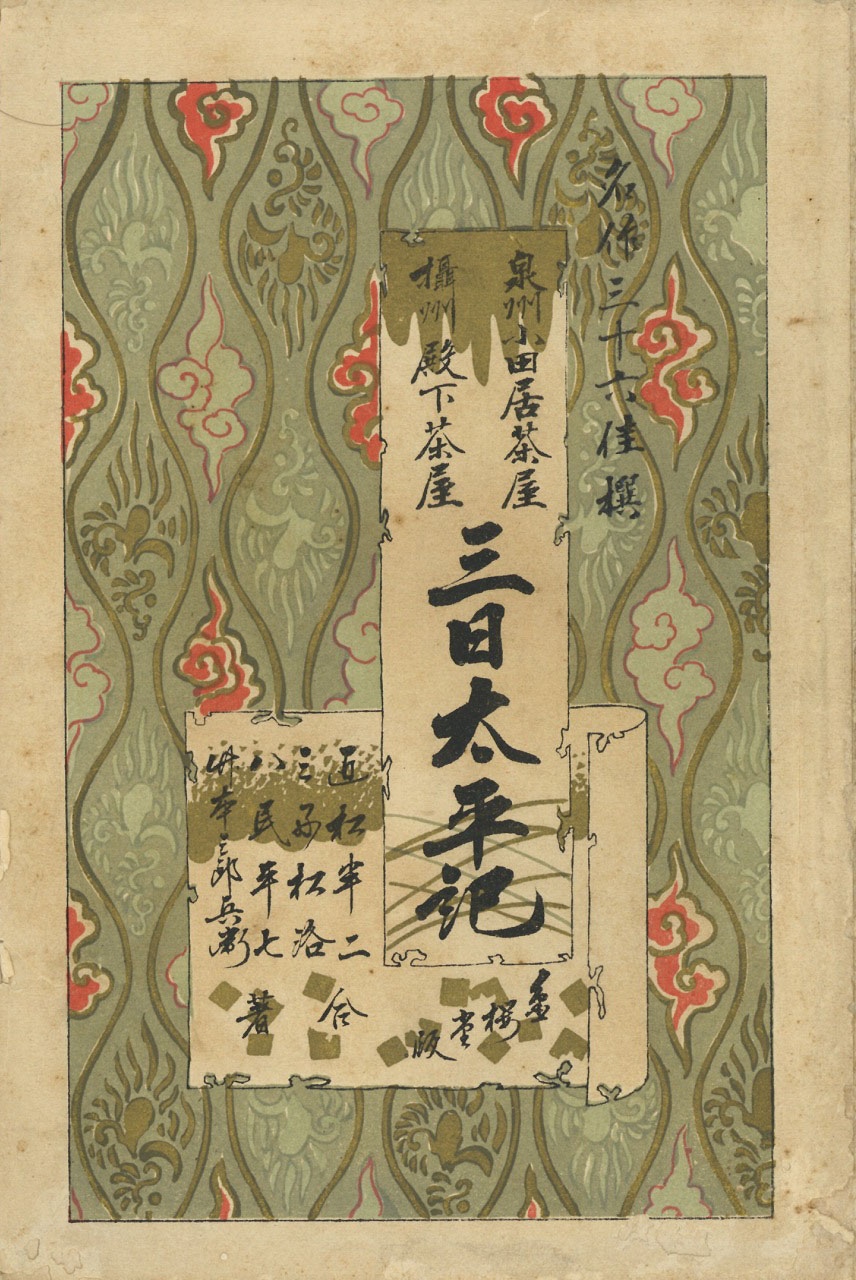 名作三十六佳撰
泉州小田居茶屋
攝州殿下茶屋
三日太平記
近松半二
三好松洛
八民平七
竹本三郎兵衛
合著
金桜堂版